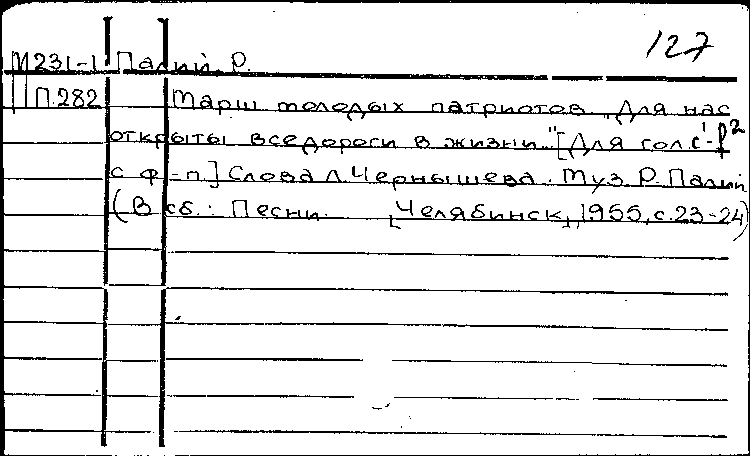 127
М231-1 Палий Р.
П.282 Марш молодых патриотов „Для нас
открыты все дороги в жизни." [Для гол. c'-f²
с ф-п.] Слова Л. Чернышева. Муз. Р. Палий
(В сб.: Песни. [Челябинск], 1955, с. 23-24)